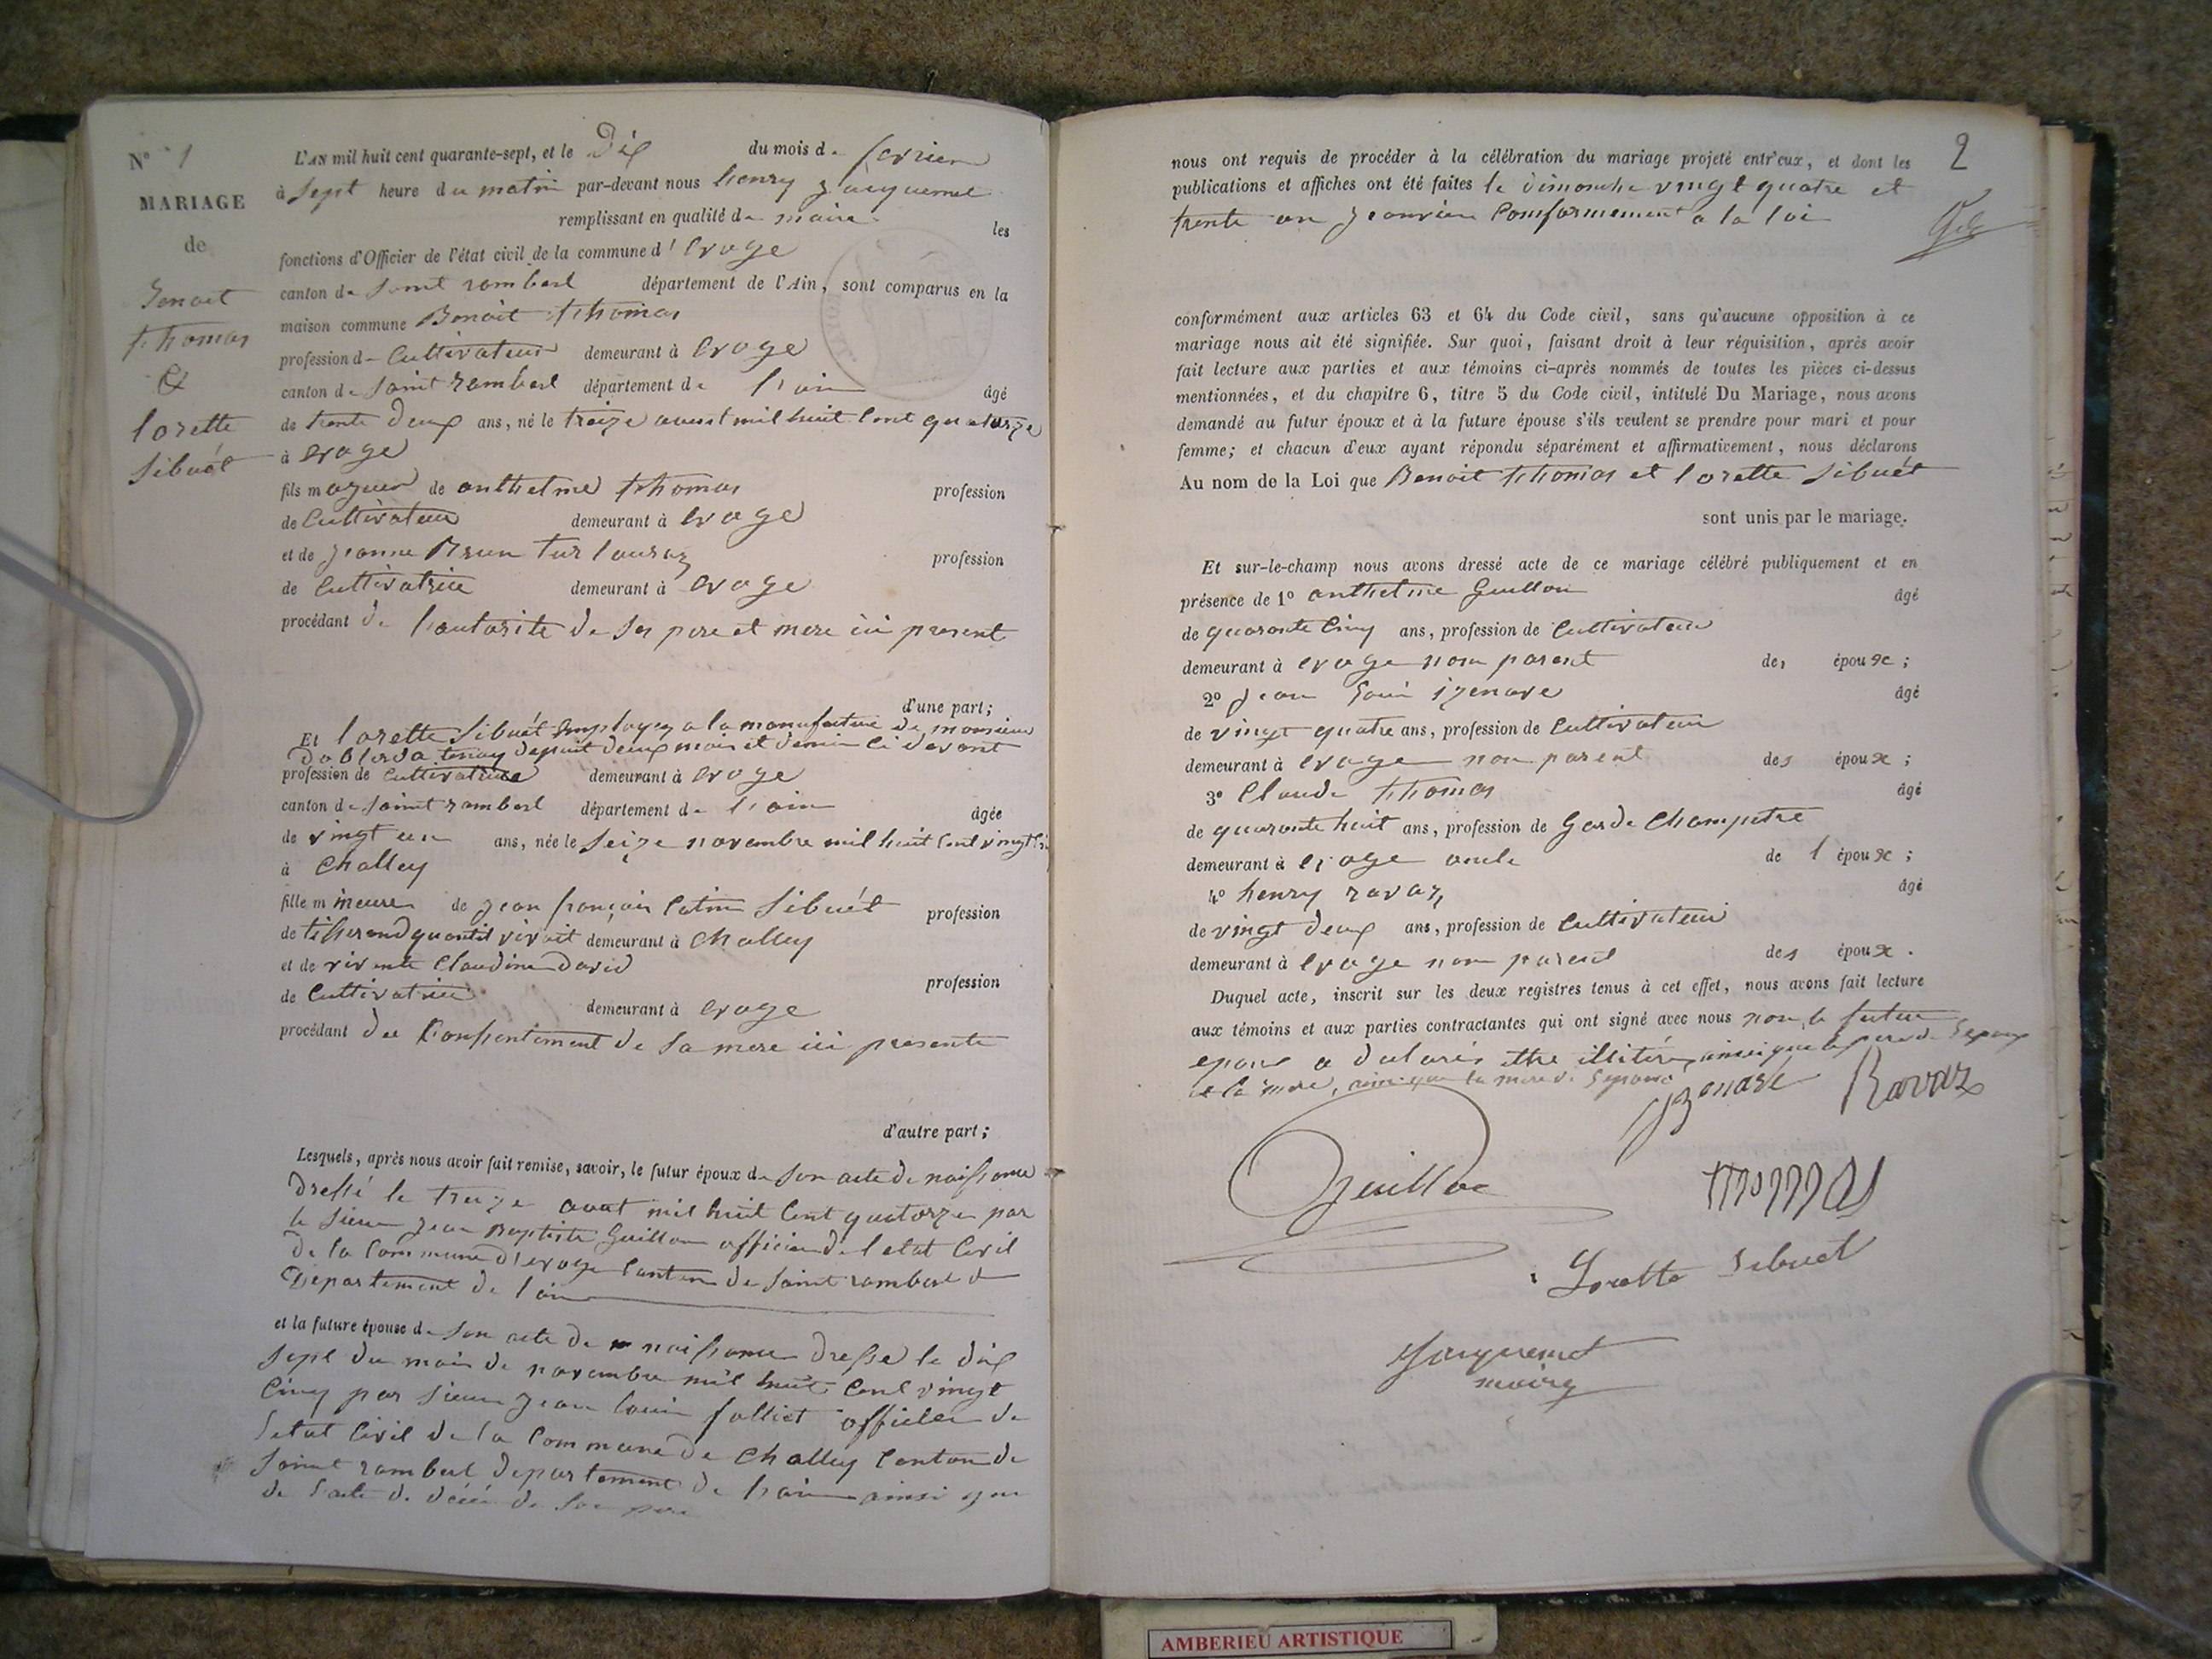 N° 1
MARIAGE
de
Benoit
thomas
&
lorette
Sibuét
L'AN mil huit cent quarante-sept, et le Dix du mois de fevrier
à Sept heure du matin par-devant nous henry Jacquemet
remplissant en qualité de maire les
fonctions d'Officier de l'état civil de la commune d' evoge
canton de Saint rambert département de l'Ain, sont comparus en la
maison commune Benoit thomas
profession de Cultivateur demeurant à evoge
canton de Saint rambert département de l'ain âgé
de trente deux ans, né le treize aoust mil huit Cent quatorze
à evoge
fils majeur de anthelme thomas profession
de Cultivateur demeurant à evoge
et de jeanne Brun profession
de Cultivatrice demeurant à evoge
procédant de l'autorite de ses pere et mere ici present
d'une part;
Et lorette Sibuét Employer a la manufacture de monsieur
tenay depuit deux mois et demi Ci devant
profession de Cultivatrice demeurant à evoge
canton de Saint rambert département de l'ain âgée
de vingt un ans, née le Seize novembre mil huit Cent vingt
à Challey
fille mineure de jean françois Sibuét profession
de tisserand quant il vivait demeurant à Challey
et de vivente Claudine David profession
de Cultivatrice demeurant à evoge
procédant du Consentement de Sa mere ici presente
d'autre part;
Lesquels, après nous avoir fait remise, savoir, le futur époux de Son acte de naissance
Dressé le treize aout mil huit Cent quatorze par
le Sieur jean Baptiste Guillon officier de l etat Civil
de la Commune d'evoge Canton de Saint rambert
Departement de l'ain
et la future épouse de Son acte de naissance dressé le dix
Sept du mois de novembre mil huit Cent vingt
Cinq par Sieur jean louis folliet officier de
l etat Civil de la Commune de Challey Canton de
Saint rambert departement de l'ain ainsi que
de l'acte de décé de Son pere
2
nous ont requis de procéder à la célébration du mariage projeté entr'eux, et dont les
publications et affiches ont été faites le dimanche vingt quatre et
trente un janvier Conformement a la loi
conformément aux articles 63 et 64 du Code civil, sans qu'aucune opposition à ce
mariage nous ait été signifiée. Sur quoi, faisant droit à leur réquisition, après avoir
fait lecture aux parties et aux témoins ci-après nommés de toutes les pièces ci-dessus
mentionnées, et du chapitre 6, titre 5 du Code civil, intitulé Du Mariage, nous avons
demandé au futur époux et à la future épouse s'ils veulent se prendre pour mari et pour
femme; et chacun d'eux ayant répondu séparément et affirmativement, nous déclarons
Au nom de la Loi que Benoit thomas et lorette Sibuét
sont unis par le mariage.
Et sur-le-champ nous avons dressé acte de ce mariage célébré publiquement et en
présence de 1° anthelme Guillon âgé
de quarante Cinq ans, profession de Cultivateur
demeurant à evoge non parent des époux ;
2° jean louis jzenave âgé
de vingt quatre ans, profession de Cultivateur
demeurant à evoge non parent des époux ;
3° Claude thomas âgé
de quarante huit ans, profession de Garde Champetre
demeurant à evoge oncle de l époux ;
4° henry ravaz âgé
de vingt deux ans, profession de Cultivateur
demeurant à evoge non parent des époux .
Duquel acte, inscrit sur les deux registres tenus à cet effet, nous avons fait lecture
aux témoins et aux parties contractantes qui ont signé avec nous non le futur
epoux a declarér etre illitéré, ainsi que le pere de l epoux
et la mere, ainsi que la mere de l epouse
Ravaz
Guillon
THOMAS
Lorette Sibuet
Jacquemet
maire
AMBERIEU ARTISTIQUE